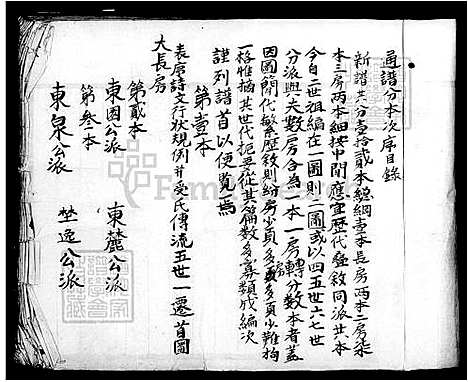 通譜分本次序目錄
新譜共分壹拾貳本總綱壹本長房兩本二房柒
本三房兩本細按中間應宜歷代登敘同派共本
今自二世祖編在一圖則二圖或以四五世六七世
分派與夫數房合為一本一房轉分數本者蓋
因圖簡代繁歷敘則紛房少頁多房多頁少難拘
一格惟摘其世代扼要從其篇數多寡類成編次
謹列譜首以便覽焉
第壹本
表序詩文行狀規例并受氏傳流五世一遷首圖
大長房
第貳本
東園公派 東麓公派
第叁本
東泉公派 竺逸公派